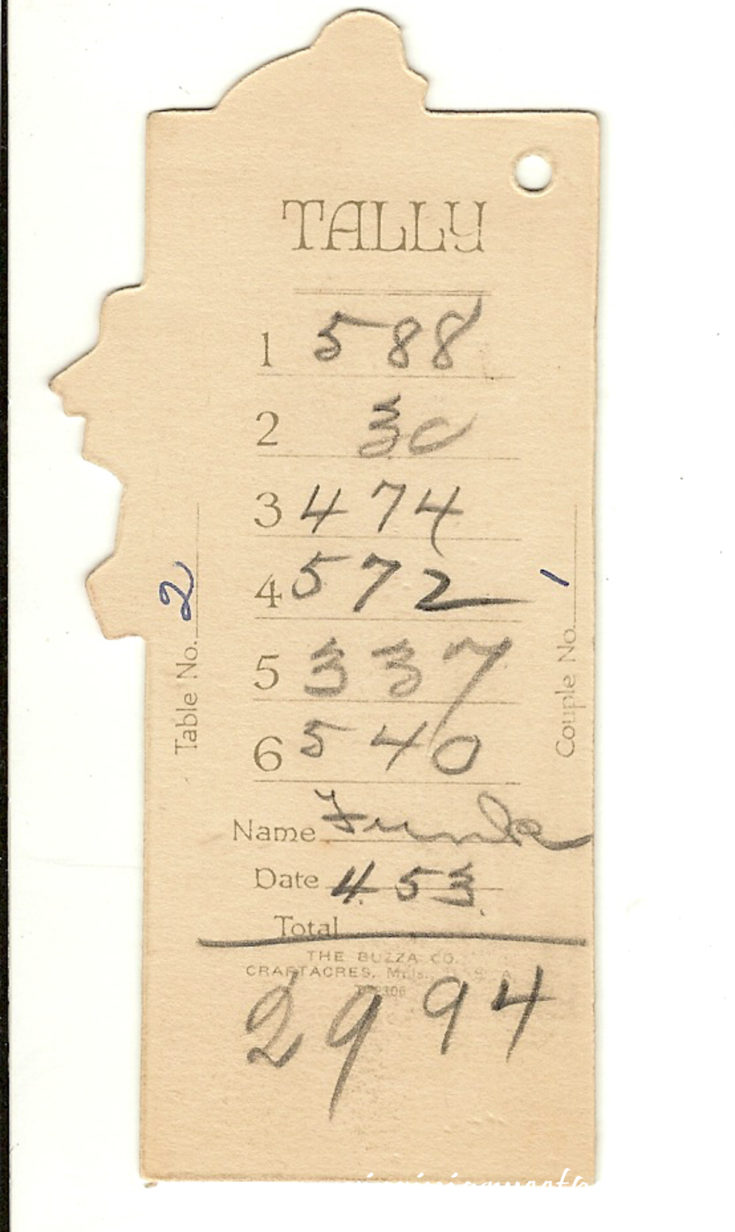 TALLY
1 588
2 30
3 474
4 572
5 337
6 540
Table No. 2
Couple No. 1
Name Funk
Date 453
Total
THE BUZZA CO.
CRAFTACRES, Mpls.,
2994